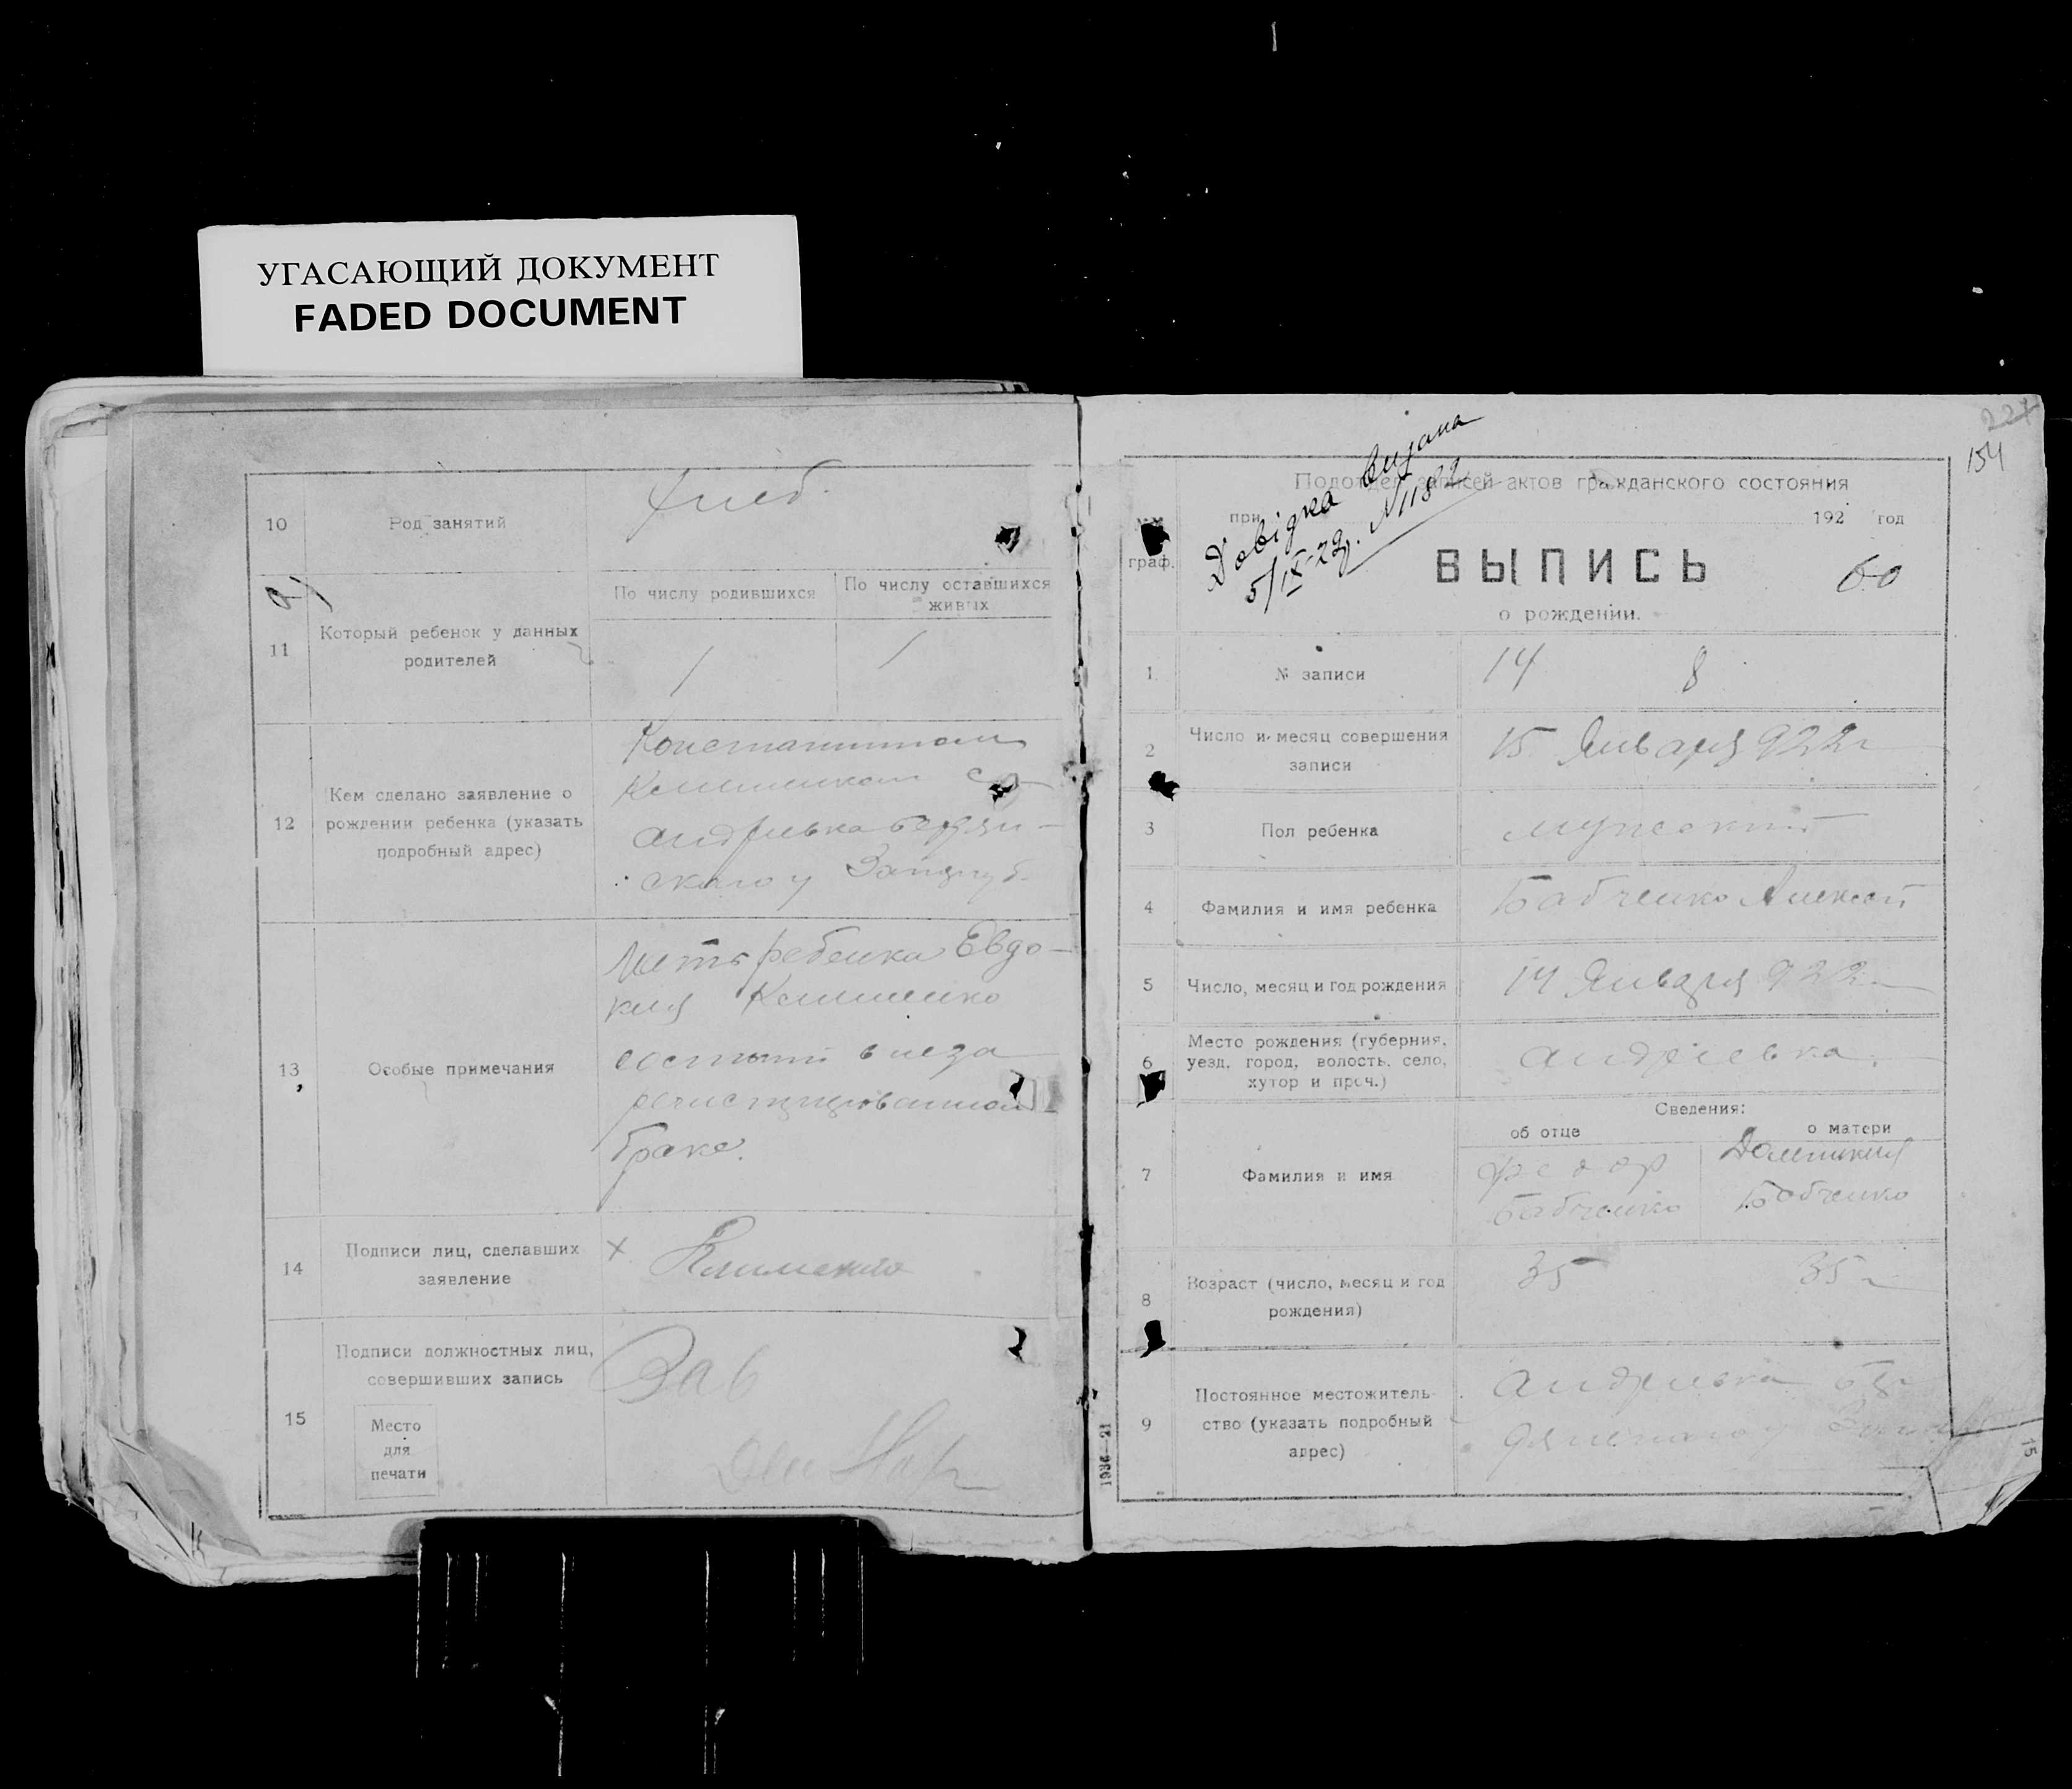 УГАСАЮЩИЙ ДОКУМЕНТ
FADED DOCUMENT
10
Род занятий
хлеб.
11
Который ребенок у данных
родителей
По числу родившихся
По числу оставшихся
живых
1
1
12
Кем сделано заявление о
рождении ребенка (указать
подробный адрес)
Константином
Клименком с
Андриевка Бердян-
ского у Запгуб.
13
Особые примечания
Мать ребенка Евдо-
кия Клименко
состоит в неза
регистрированном
браке.
14
Подписи лиц, сделавших
заявление
х Клименко
15
Подписи должностных лиц,
совершивших запись
Место
для
печати
Зав
224
154
Довідка видана
5/IX-29р. N1182
Подотдел записей актов гражданского состояния
при
192 год
граф.
ВЫПИСЬ
60
о рождении.
1
№ записи
14
8
2
Число и месяц совершения
записи
15 Января 922г
3
Пол ребенка
мужской
4
Фамилия и имя ребенка
Бабченко Алексей
5
Число, месяц и год рождения
14 Января 922г
6
Место рождения (губерния,
уезд, город, волость, село,
хутор и проч.)
Андриевка
Сведения:
об отце
о матери
7
Фамилия и имя
Федор
Бабченко
Домникия
Бабченко
8
Возраст (число, месяц и год
рождения)
35
35
9
Постоянное местожитель-
ство (указать подробный
адрес)
Андриевка
1986—21
15